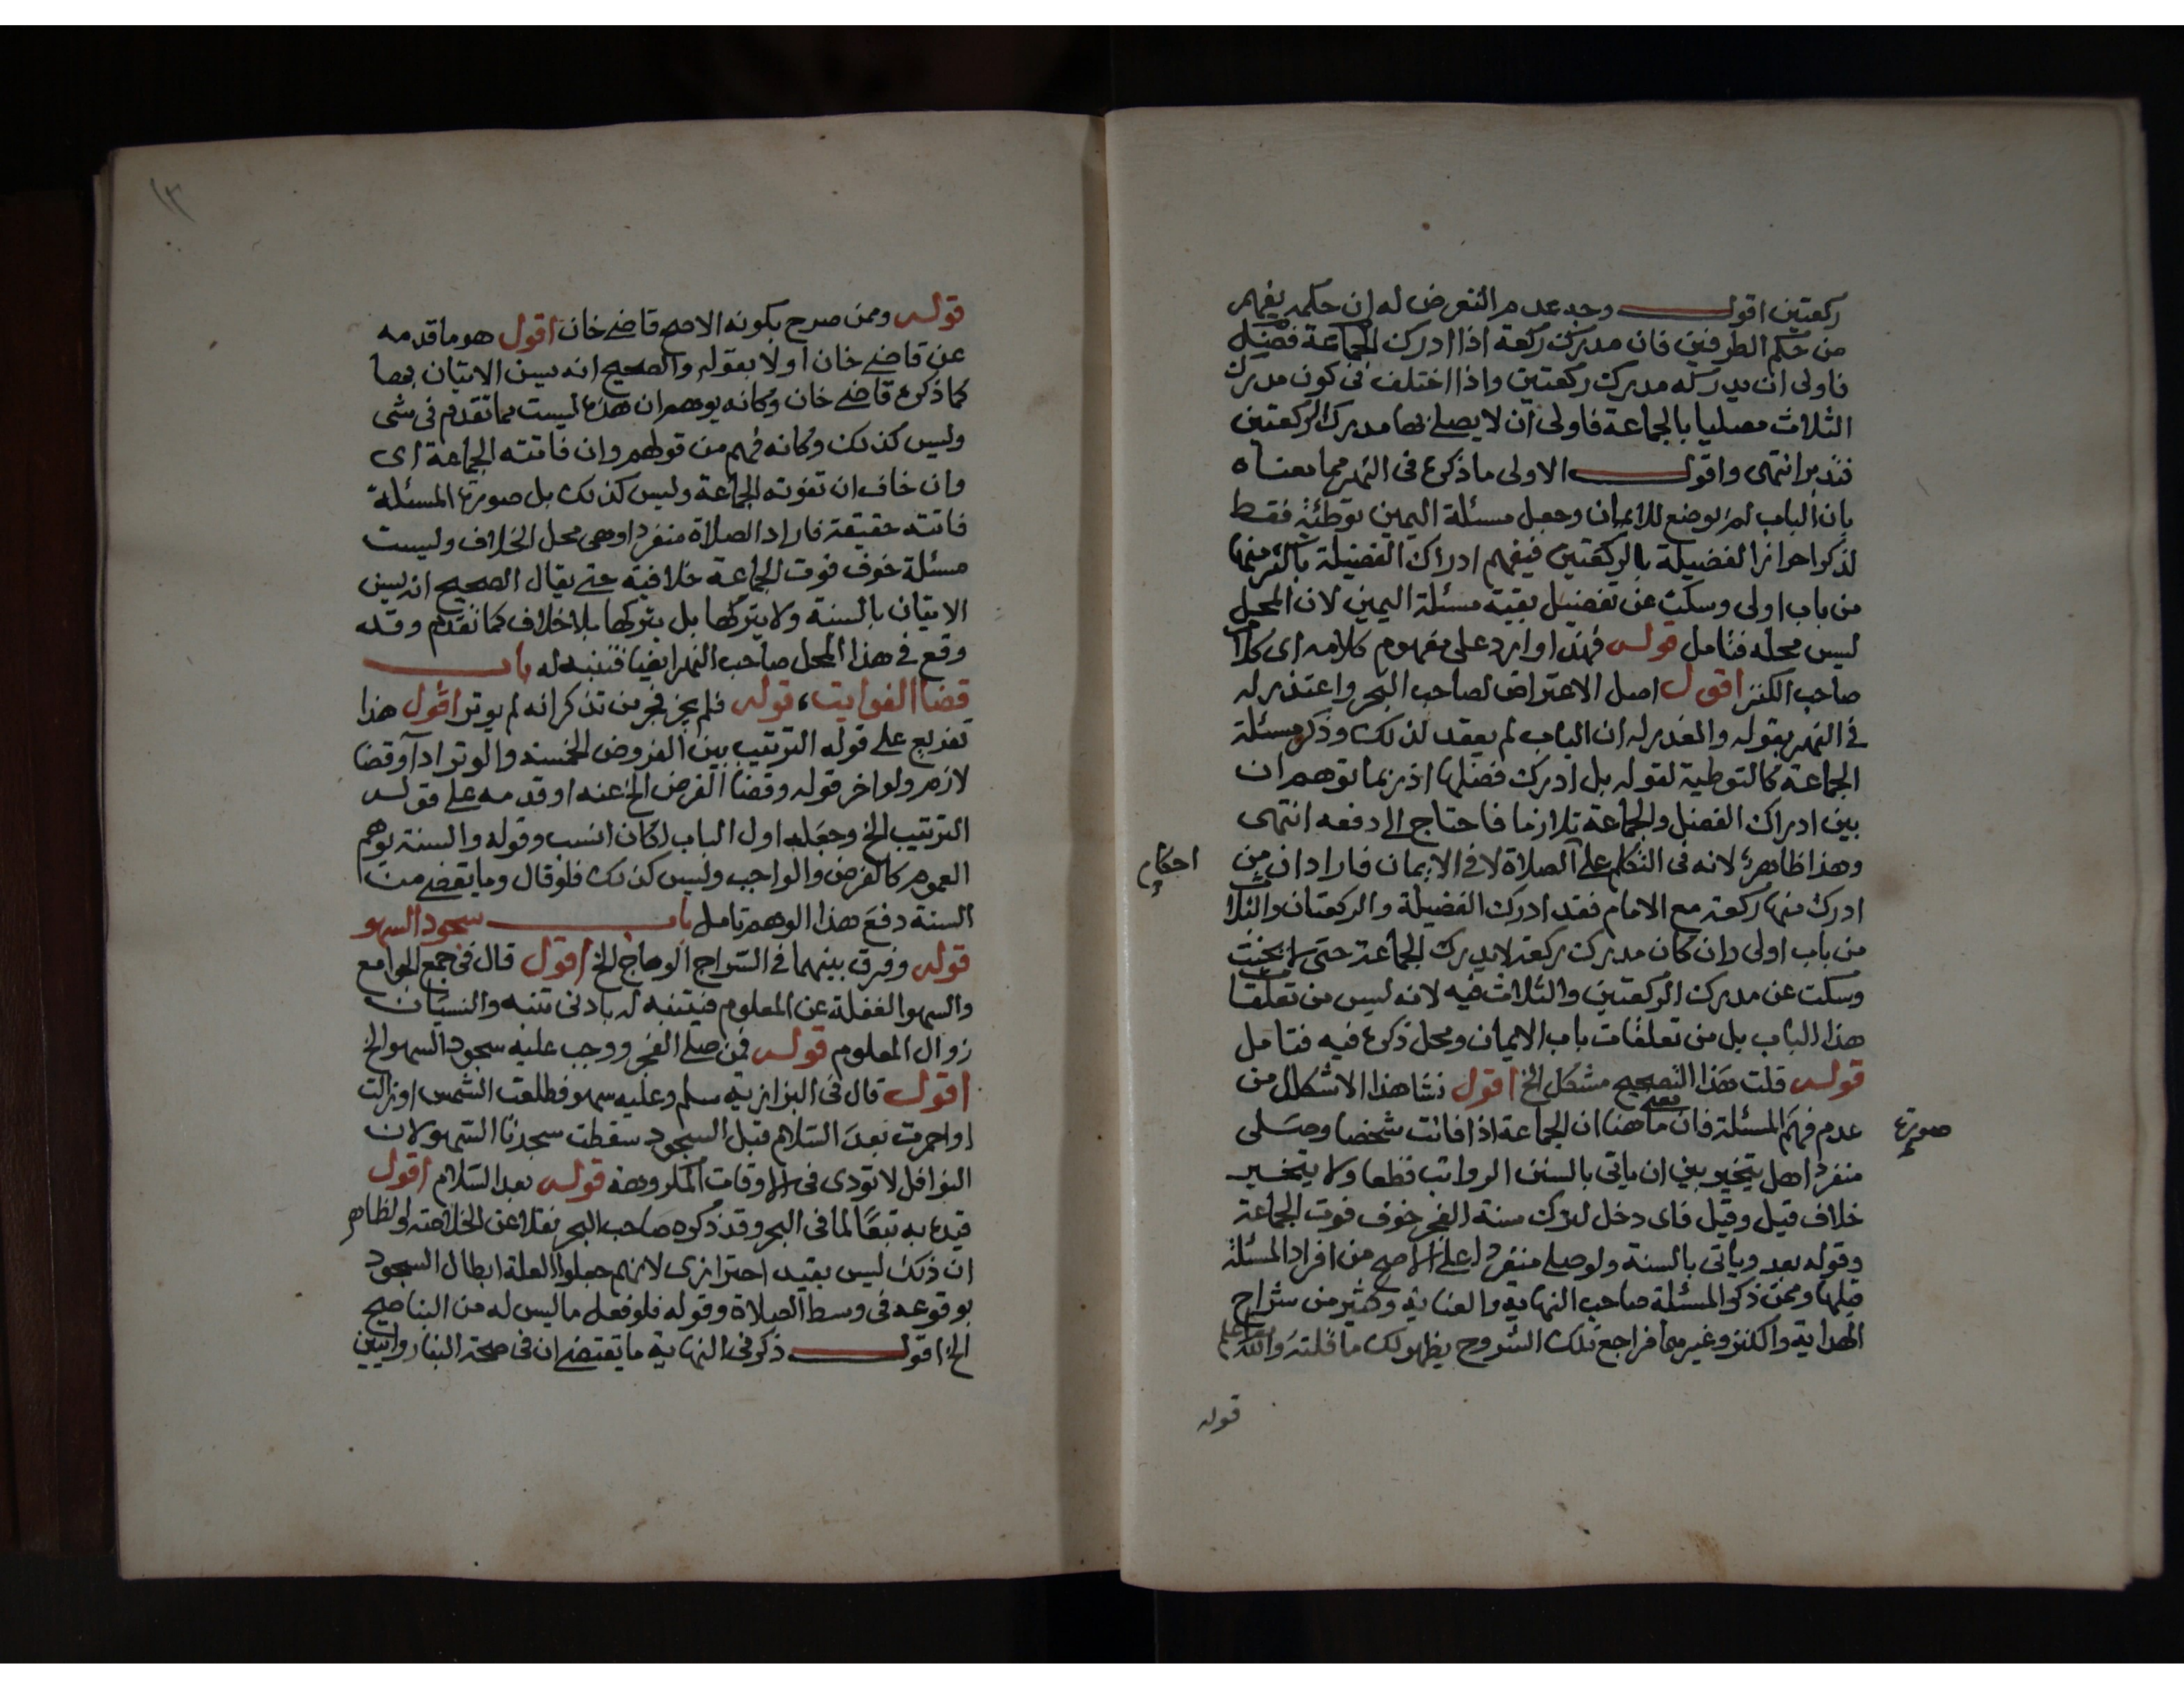 ركعتين اقول وجه عدم التعرض له ان حكمه يفهم
من حكم الطرفين فان مدرك ركعة اذا ادرك الجماعة فضيل
فاولى ان يدركه مدرك ركعتين واذا اختلف في كون مدرك
الثلاث مصليا بالجماعة فاولى ان لا يصلي بها مدرك الركعتين
فتدبر انتهى واقول الاولى ما ذكره في النهر مما معناه
بان الباب لم يوضع للايمان وجعل مسئلة اليمين توطئة فقط
لذكر احراز الفضيلة بالركعتين فيفهم ادراك الفضيلة باكثر منها
من باب اولى وسكت عن تفضيل بقية مسئلة اليمين لان المحل
ليس محله فتامل قوله فهذا وارد على مفهوم كلامه اى كلام
صاحب الكنز اقول اصل الاعتراض لصاحب البحر واعتذر له
في النهر بقوله والعذر له ان الباب لم يعقد لذلك وذكر مسئلة
الجماعة كالتوطية لقوله بل ادرك فضلها اذ ربما توهم ان
بين ادراك الفضل والجماعة تلازما فاحتاج الى دفعه انتهى
وهذا ظاهر لانه في التكلم على الصلاة لا في الايمان فاراد ان من
احكام
ادرك منها ركعة مع الامام فقد ادرك الفضيلة والركعتان والثلاث
من باب اولى وان كان مدرك ركعة لا يدرك الجماعة حتى لا يحنث
وسكت عن مدرك الركعتين والثلاث فيه لانه ليس من تعلقات
هذا الباب بل من تعلقات باب الايمان ومحل ذكره فيه فتامل
قوله قلت هذا التصحيح مشكل الخ اقول نشا هذا الاشكال من
عدم فهم المسئلة فان ما هنا ان الجماعة اذا فاتت شخصا وصلى
صورة
منفردا هل يتخير بين ان ياتى بالسنن الرواتب قطعا ولا يتخير
خلاف قيل وقيل فاى دخل لدرك سنة الفجر خوف فوت الجماعة
وقوله بعد وياتى بالسنة ولو صلى منفردا على الاصح من افراد المسئلة
قبلها وممن ذكر المسئلة صاحب النهاية والعناية وكثير من شراح
الهداية والكنز وغيرهما فراجع تلك الشروح يظهر لك ما قلته والله اعلم
قوله
١٣
قوله وممن صرح بكونه الاصح قاضى خان اقول هو ما قدمه
عن قاضى خان اولا بقوله والصحيح انه يسن الاتيان بها
كما ذكره قاضى خان وكانه يوهم ان هذه ليست مما تقدم في شى
وليس كذلك وكانه فهم من قولهم وان فاتته الجماعة اى
وان خاف ان تفوته الجماعة وليس كذلك بل صورة المسئلة
فاتته حقيقة فاراد الصلاة منفردا وهي محل الخلاف وليست
مسئلة خوف فوت الجماعة خلافية حتى يقال الصحيح انه يسن
الاتيان بالسنة ولا يتركها بل يتركها بلا خلاف كما تقدم وقد
وقع في هذا المحل صاحب النهر ايضا فتنبه له باب
قضا الفوايت، قوله فلم يجز فجر من تذكر انه لم يوتر اقول هذا
تفريع على قوله الترتيب بين الفروض الخمسة والوتر اداء وقضا
لازم ولو اخر قوله وقضا الفرض الخ عنه او قدمه على قوله
الترتيب الخ وجعله اول الباب لكان انسب وقوله والسنة يوهم
العموم كالفرض والواجب وليس كذلك فلو قال وما يقضى من
السنة دفع هذا الوهم تامل باب سجود السهو
قوله وفرق بينهما في السراج الوهاج الخ اقول قال في جمع الجوامع
والسهو الغفلة عن المعلوم فيتنبه له بادنى تنبه والنسيان
زوال المعلوم قوله فمن صلى الفجر ووجب عليه سجود السهو الخ
اقول قال في البزازية سلم وعليه سهو فطلعت الشمس او زالت
او احمرت بعد السلام قبل السجود سقطت سجدتا السهو لان
النوافل لا تودى في الاوقات المكروهة قوله بعد السلام اقول
قيده به تبعا لما في البحر وقد ذكره صاحب البحر نقلا عن الخلاصة والظاهر
ان ذلك ليس بقيد احترازى لانهم جعلوا العلة ابطال السجود
بوقوعه في وسط الصلاة وقوله فلو فعل ما ليس له من البنا صح
الخ اقول ذكر في النهاية ما يقتضى ان في صحة البنا روايتين